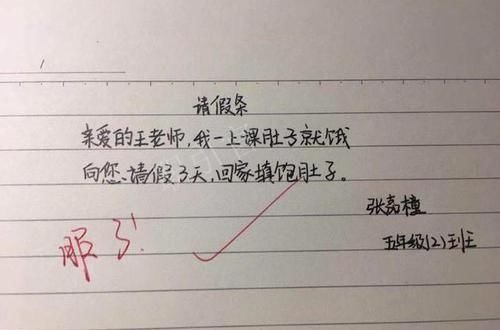 请假条
亲爱的王老师,我一上课肚子就饿
向您请假3天,回家填饱肚子。
张嘉檀
五年级(2)班
服了!